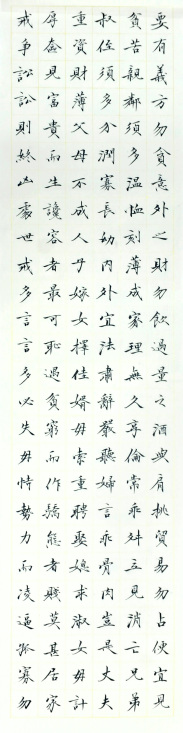 要有義方勿貪意外之財勿飲過量之酒與肩挑貿易勿占便宜見
貧苦親鄰須多溫恤刻薄成家理無久享倫常乖舛立見消亡兄弟
叔侄須多分潤寡長幼內外宜法肅辭嚴聽婦言乖骨肉豈是丈夫
重資財薄父母不成人子嫁女擇佳婿毋索重聘娶媳求淑女毋計
厚奩見富貴而生讒容者最可恥遇貧窮而作驕態者賤莫甚居家
戒爭訟訟則終凶處世戒多言言多必失毋恃勢力而凌逼孤寡勿